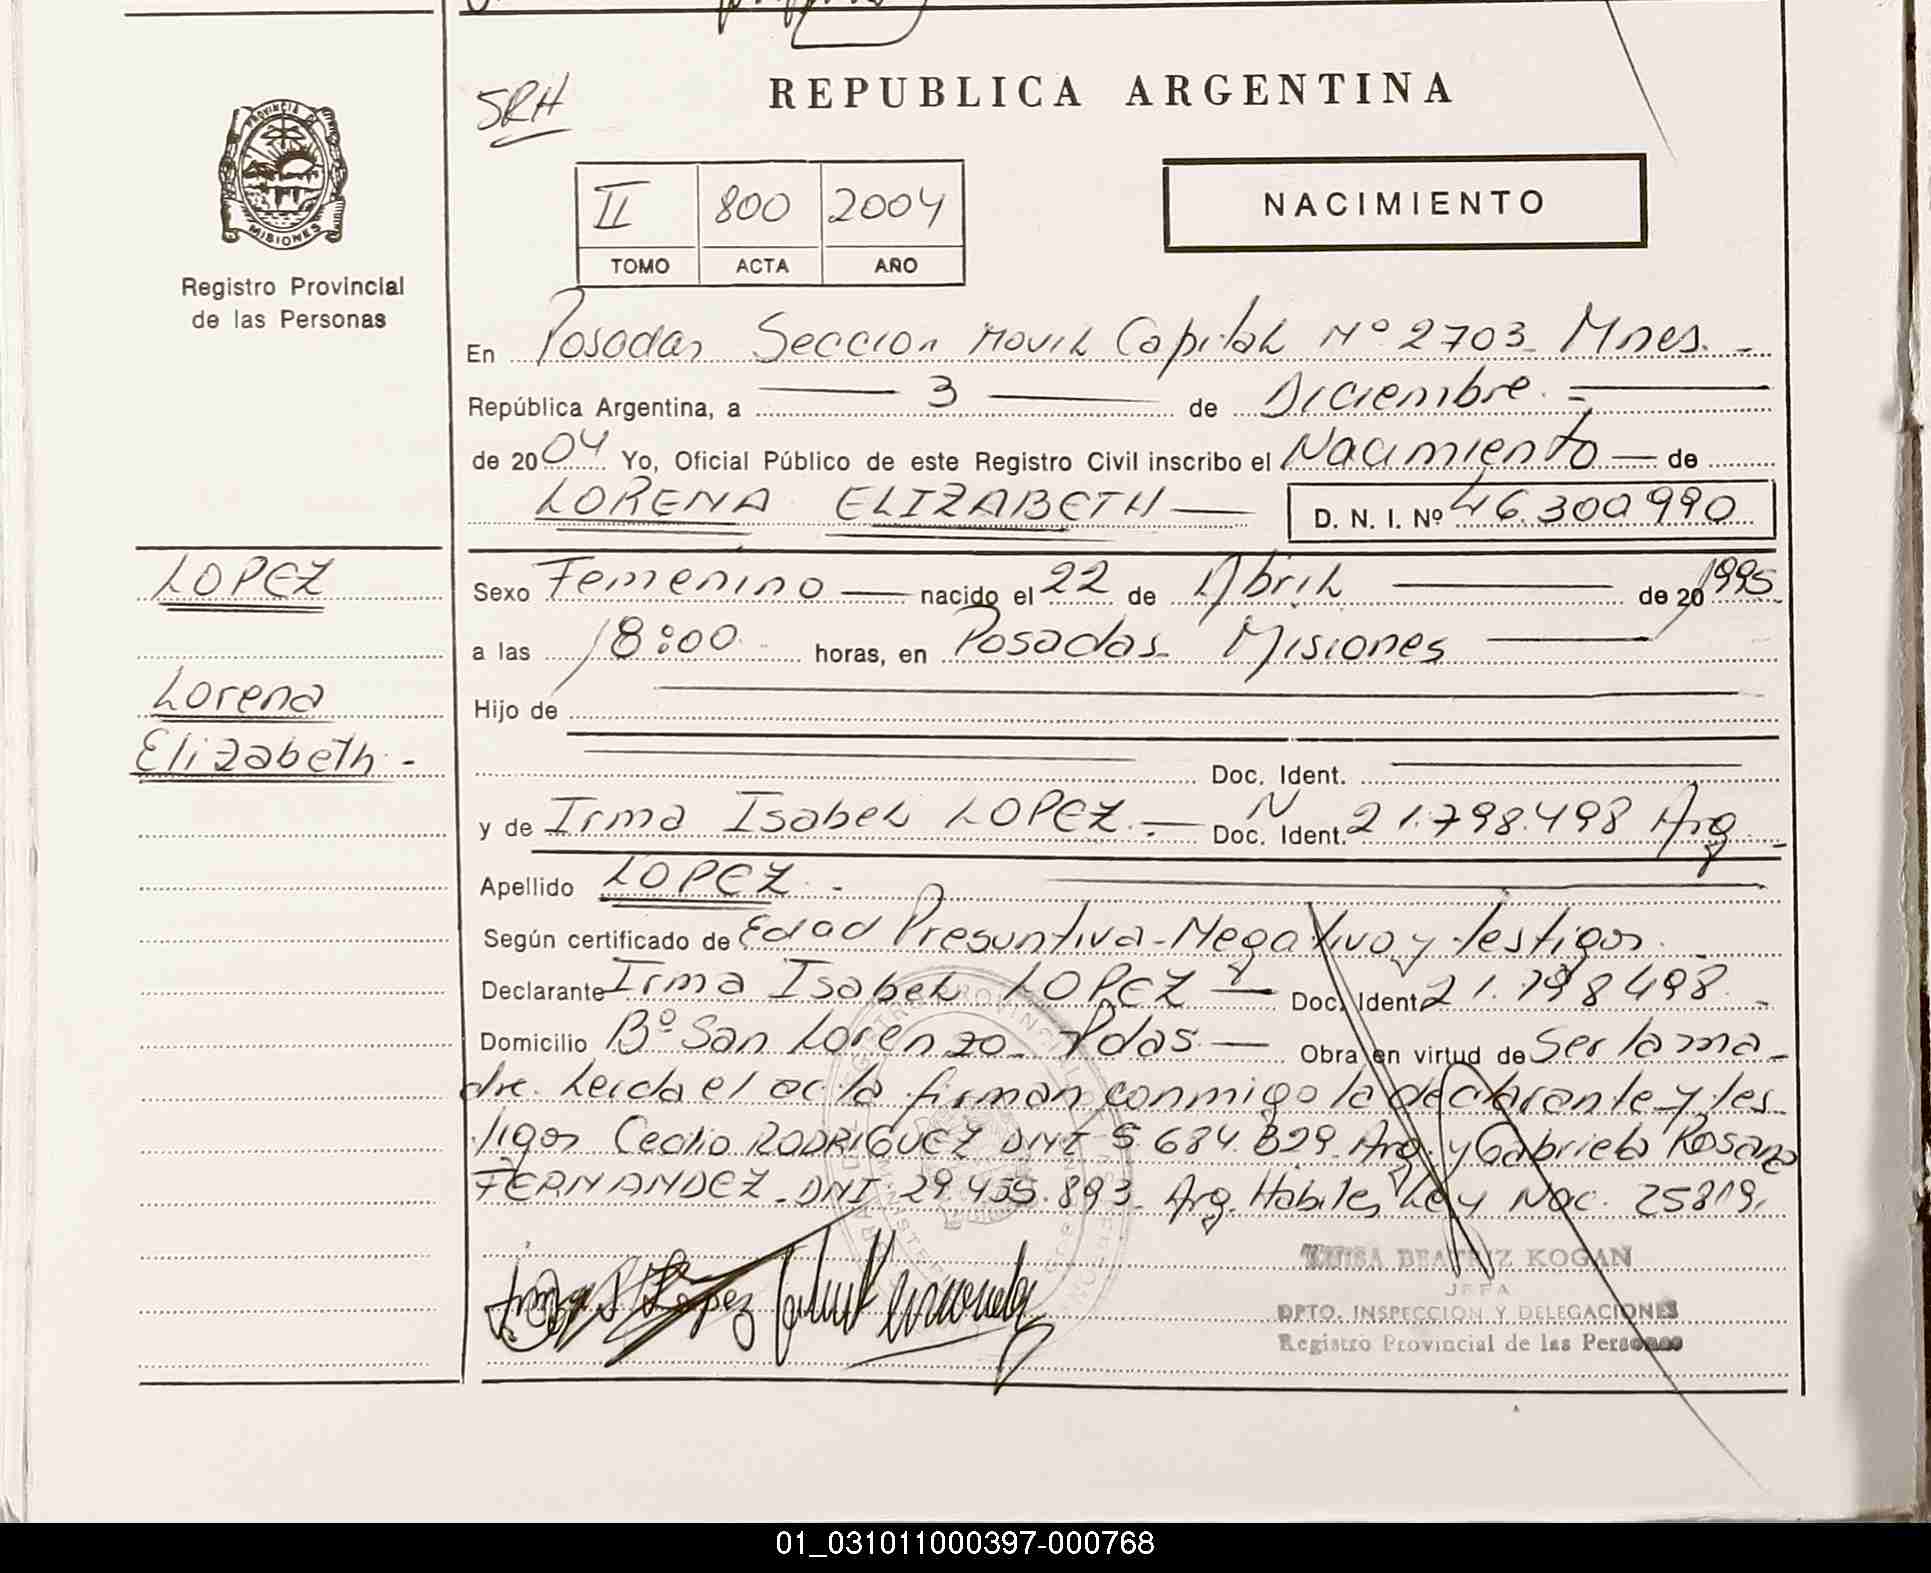 SRH
REPUBLICA ARGENTINA
PROVINCIA DE
MISIONES
Registro Provincial
de las Personas
II 800 2004
TOMO ACTA AÑO
NACIMIENTO
En Posadas Seccion Movil Capital Nº 2703 Mnes.
República Argentina, a 3 de Diciembre
de 2004 Yo, Oficial Público de este Registro Civil inscribo el Nacimiento de
LORENA ELIZABETH D. N. I. Nº 46.300990
LOPEZ
Lorena
Elizabeth
Sexo Femenino nacido el 22 de Abril de 20 1995
a las 18:00 horas, en Posadas Misiones
Hijo de
Doc. Ident.
y de Irma Isabel LOPEZ. Doc. Ident. N 21.798.498 Arg
Apellido LOPEZ
Según certificado de Edad Presuntiva - Negativo y testigos.
Declarante Irma Isabel LOPEZ Doc. Ident. 21.798498
Domicilio Bº San Lorenzo Pdas Obra en virtud de Ser la ma-
dre. Leida el acta firman conmigo la declarante y tes
tigos Cecilio RODRIGUEZ DNI 5.684.829 Arg. y Gabriela Rosana
FERNANDEZ - DNI 29.455.893 Arg. Habiles Ley Nac. 25819.
Lopez
LUISA BEATRIZ KOGAN
JEFA
DPTO. INSPECCION Y DELEGACIONES
Registro Provincial de las Personas
01_031011000397-000768